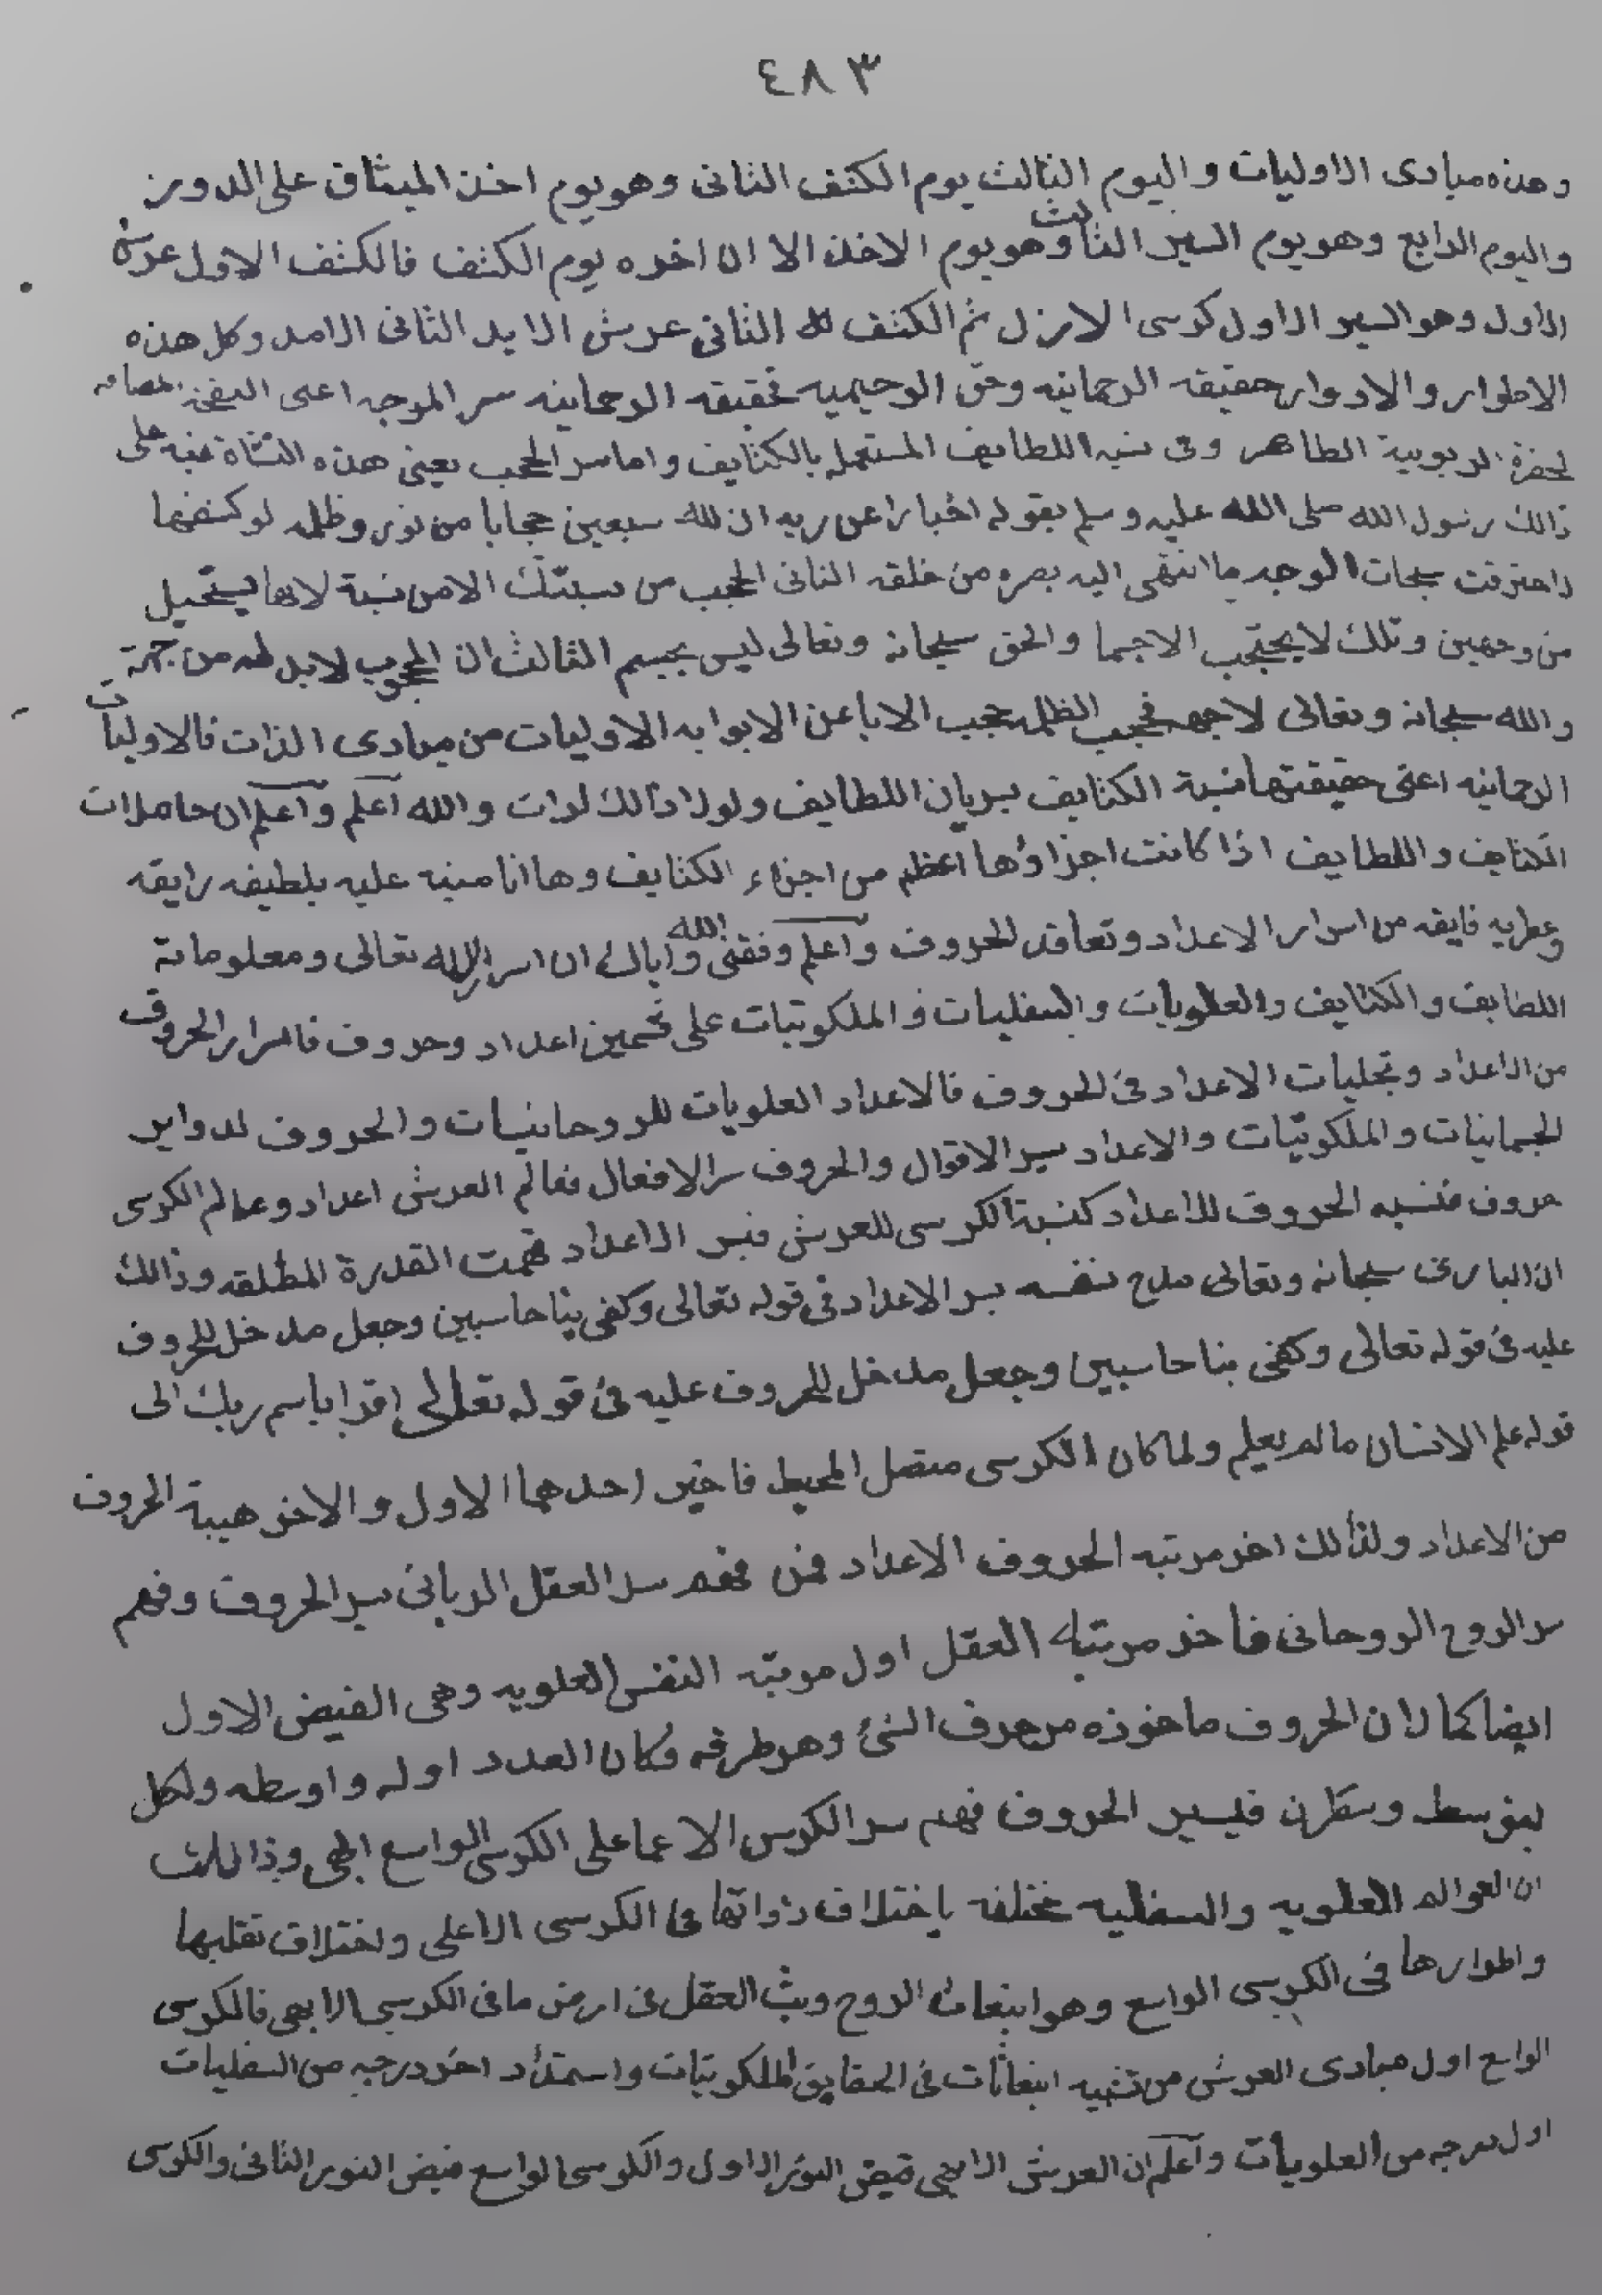 ٤٨٣
وهذه مبادى الاوليات واليوم الثالث يوم الكثف الثانى وهو يوم اخذ الميثاق على الدور
واليوم الرابع وهو يوم السير الثالث وهو يوم الاخذ الا ان اخره يوم الكثف فالكثف الاول عرش
الاول وهو السير الاول كرسى الازل ثم الكثف الثانى عرش الابد الثانى الامد وكل هذه
الاطوار والادوار حقيقه الرحمانيه وحق الرحيميه فحقيقه الرحمانيه سر الموجه اعنى
لحضرة الربوبية الطاهر وفى نسبه اللطايف المستعمله بالكثايف واما سر الحجب يعنى هذه النشاة فنبه على
ذالك رسول الله صلى الله عليه وسلم بقوله اخبارا عن ربه ان لله سبعين حجابا من نور وظلمه لو كشفها
لاحترقت سبحات الوجه ما انتهى اليه بصره من خلقه الثانى الحجب من الامن نسبة لانها يستحيل
من وجهين وتلك لا يحتجب الاجما والحق سبحانه وتعالى ليس بجسم الثالث ان المحجوب لابد له من جهة
والله سبحانه وتعالى لاجهه فحجب الظلمه حجب الابا عن الابوابه الاوليات من مبادى الذات فالاوليات
الرحمانيه اعنى حقيقتها نسبة الكثايف بسريان اللطايف ولولا ذالك لرات والله اعلم واعلم ان حاملات
الكثايف واللطايف اذا كانت اجزاؤها اعظم من اجزاء الكثايف وها انا منبه عليه بلطيفه رايقه
وعطريه فايقه من اسرار الاعداد وتعاقد للحروف واعلم وفقنى الله واياك ان اسرار الله تعالى ومعلوماته
اللطايف والكثايف والعلويات والسفليات والملكوتيات على قسمين اعداد وحروف فاسرار الحروف
من الاعداد وتجليات الاعداد فى للحروف فالاعداد العلويات للروحانيات والحروف لدواير
الجسمانيات والملكوتيات والاعداد سر الاقوال والحروف سر الافعال فعالم العرش اعداد وعالم الكرسى
حروف فنسبه الحروف للاعداد كنسبة الكرسى للعرش فبسر الاعداد فهمت القدرة المطلقه وذالك
ان البارى سبحانه وتعالى مدح نفسه بسر الاعداد فى قوله تعالى وكفى بنا حاسبين وجعل مدخل للحروف
عليه فى قوله تعالى وكفى بنا حاسبين وجعل مدخل للحروف عليه فى قوله تعالى اقرا باسم ربك الى
قوله علم الانسان مالم يعلم ولما كان الكرسى متصل المحيط فاخير احدهما الاول والاخر هيبة الحروف
من الاعداد ولذالك اخر مرتبه الحروف الاعداد فمن فهم سر العقل الربانى سر الحروف وفهم
سر الروح الروحانى فاخذ مرتبه العقل اول مرتبه النفس العلويه وهى الفيض الاول
ايضا كما ان الحروف ماخوذه من حرف الشئ وهو طرفه وكان العدد اوله واوسطه ولكل
بتوسط فبسر الحروف فهم سر الكرسى الاعما على الكرسى الواسع وذالك
ان العوالم العلويه والسفليه مختلفه باختلاف ذواتها فى الكرسى الاعلى ولختلاف تقلبها
واطوارها فى الكرسى الواسع وهو انبعاث الروح وبث العقل فى ارض ما فى الكرسى الابهى فالكرسى
الواسع اول مبادى العرش من انبعاثات فى الحقايق الملكوتيات واستمداد اخر درجه من السفليات
اول درجه من العلويات واعلم ان العرش الابهى فيض النور الاول والكرسى الواسع فيض النور الثانى والكرسى